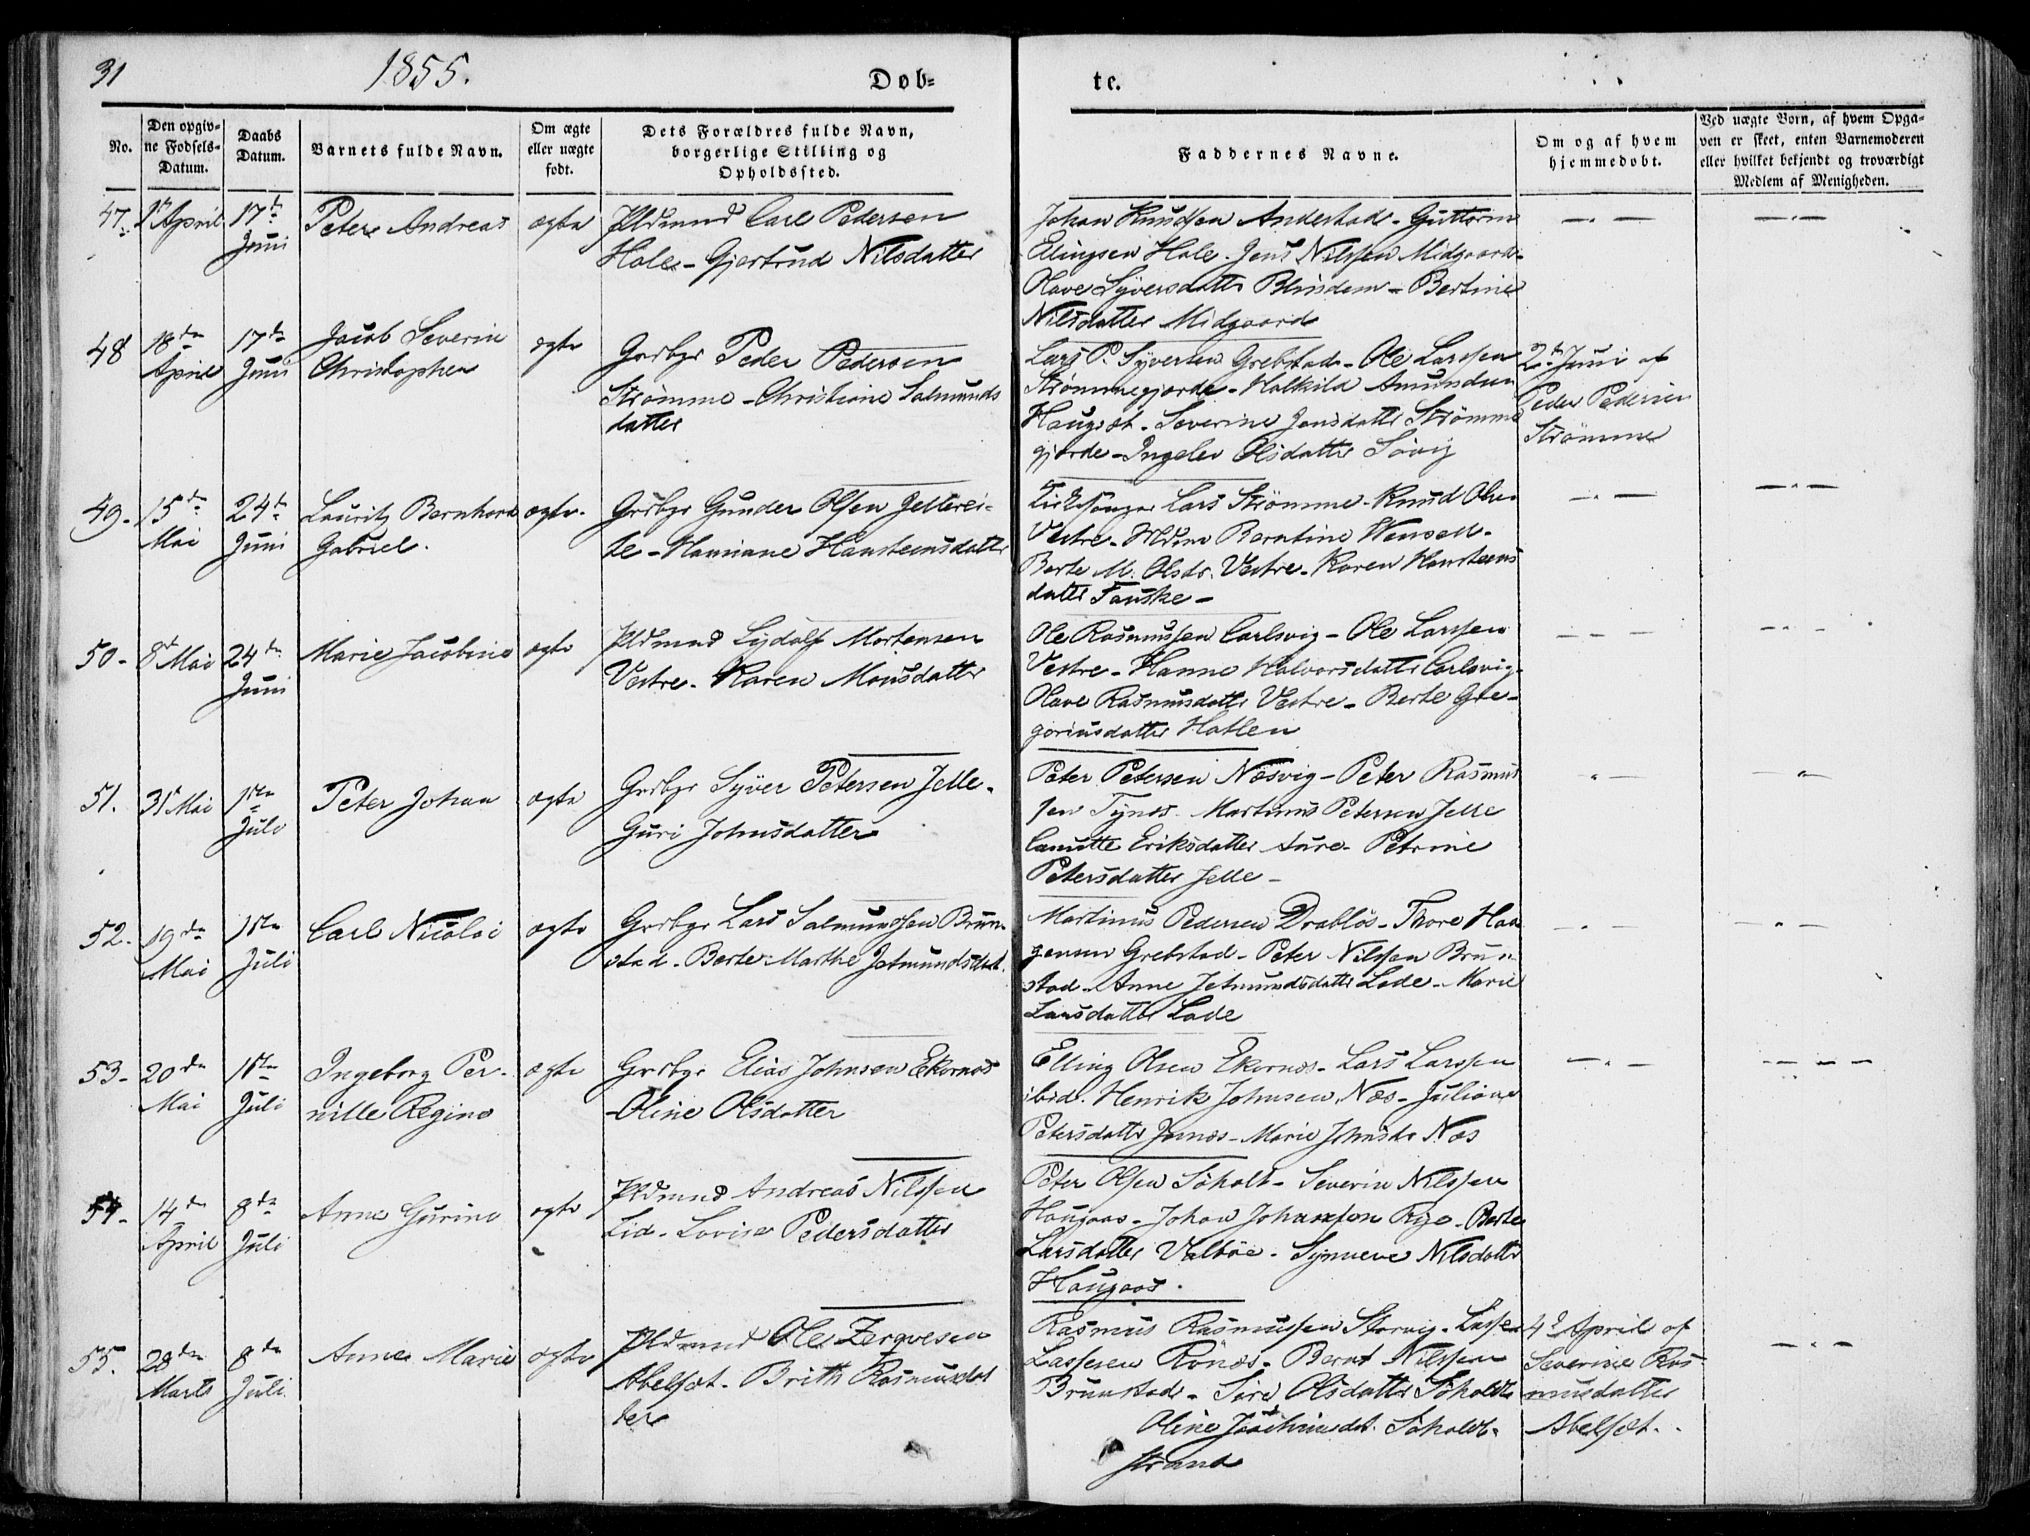 31
1855.
Døb-
te.
No.
Den opgiv-
ne Fødsels-
Datum.
Daabs
Datum.
Barnets fulde Navn.
Om ægte
eller uægte
født.
Dets Forældres fulde Navn,
borgerlige Stilling og
Opholdssted.
Faddernes Navne.
Om og af hvem
hjemmedøbt.
Ved uægte Born, af hvem Opga-
ven er skeet, enten Barnemoderen
eller hvilket bekjendt og troværdigt
Medlem af Menigheden.
47. April 17
Juni
Peter Andreas
ægte
Pldmand Carl Pedersen
Hole - Gjertrud Nilsdatter
Johan Knudsen Andestad - Guttorm
Elingsen Hole. Jens Nilssen Midgaard-
Olave Syversdatter Blindem - Bertine
Nilsdatter Midgaard
48 18de
April
17de
Juni
Jacob Severin
Christopher
ægte
Grdbgr Peder Pedersen
Strømme - Christiane Salmunds
datter
Lars P. Syversen Grebstad - Ole Larssen
Strømmegjerde - Halkild Amundsen
Haugset - Severine Jensdatter Strømme
gjerde - Ingelev Olsdatter Søvig
2 Juni af
Peder Pedersen
Strømme
49. 15de
Mai
24
Juni
Lauritz Bernhard
Gabriel.
ægte
Grdbgr Gunder Olsen Jellerei-
te - Hansteensdatter
Kirkesanger Lars Strømme - Knud Olsen
Vestre - Berntine Wensell -
Berte M. Olsdr. Vestre - Karen Hansteens
datter Fauske -
50 - 8 Mai 24de
Juni
Marie Jacobine
ægte
Pldmand Lydolf Mortensen
Vestre - Karen Monsdatter
Ole Rasmussen Carlsvig - Ole Larssen
Vestre - Hanne Halvorsdatter Carlsvig -
Olave Rasmusdatter Vestre - Berte Gre-
goriusdatter Hatlen
51. 31 Mai 1ste
Juli
Peter Johan
ægte
Grdbgr Syver Petersen Jelle -
Guri Johnsdatter
Peter Petersen Næsvig - Peter Rasmus
sen Tynes. Martinus Petersen Jelle
Eriksdatter Aure - Petrine
Petersdatter Jelle -
52. 19de
Mai
1ste
Juli
Carl Nicolai
ægte
Grdbgr Lars Salmundsen Brun-
stad - Berte Marthe Jetmundsdat.
Martinus Pedersen Drabløs - Thore Haa
gensen Grebstad - Peter Nilssen Brun
stad - Anne Jetmundsdatter Lade - Marie
Larsdatter Lade
53 - 20de
Mai
1ste
Juli
Ingeborg Per-
nille Regine
ægte
Grdbgr Elias Johnsen Ekornæs
- Oline Olsdatter
Elling Olsen Ekornæs - Lars Larssen
ibid. Henrik Johnsen Næs - Juliane
Petersdatter - Marie Johnsdr Næs
54 - 14de
April
8de
Juli
Anne Gurine
ægte
Pldmand Andreas Nilssen
Lid - Lovise Pedersdatter
Peter Olsen Søholt - Severin Nilssen
Haugaas - Johan Johannsen Rye - Berte
Larsdatter Velbøe - Synneve Nilsdatter
Haugaas.
55. 28de
Marts
8de
Juli
Anne Marie
ægte
Pldmand Ole Zergvesen
Abelset - Brith Rasmusdat
ter
Rasmus Rasmussen Storvig -
Lassesen Rønæs - Bernt Nilssen
Brunstad - Siri Olsdatter Søholdt
Oline Joachimsdat. Søholdt-
strand
4 April af
Severine Ras
musdatter
Abelset.